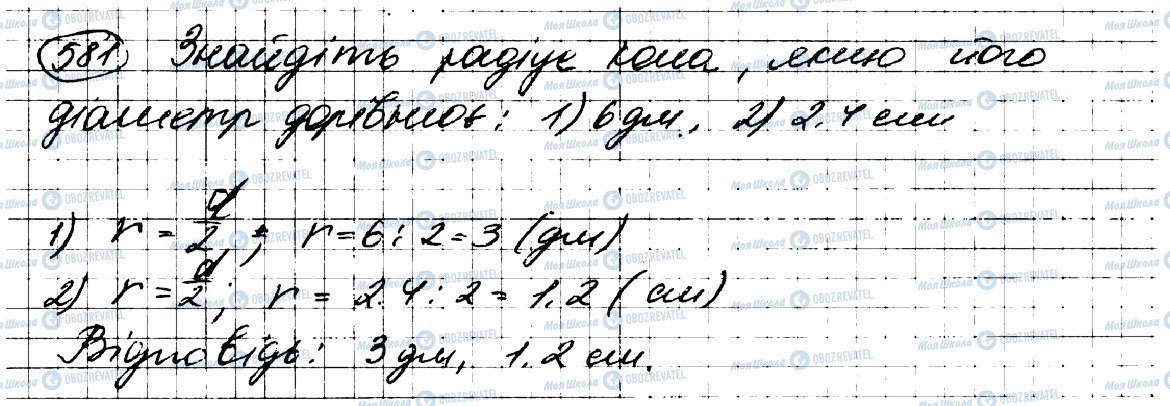 581 Знайдіть радіус кола, якщо його
діаметр дорівнює: 1) 6 дм, 2) 2.4 см
1) r = d/2; r = 6 : 2 = 3 (дм)
2) r = d/2; r = 2.4 : 2 = 1.2 (см)
Відповідь: 3 дм, 1.2 см.